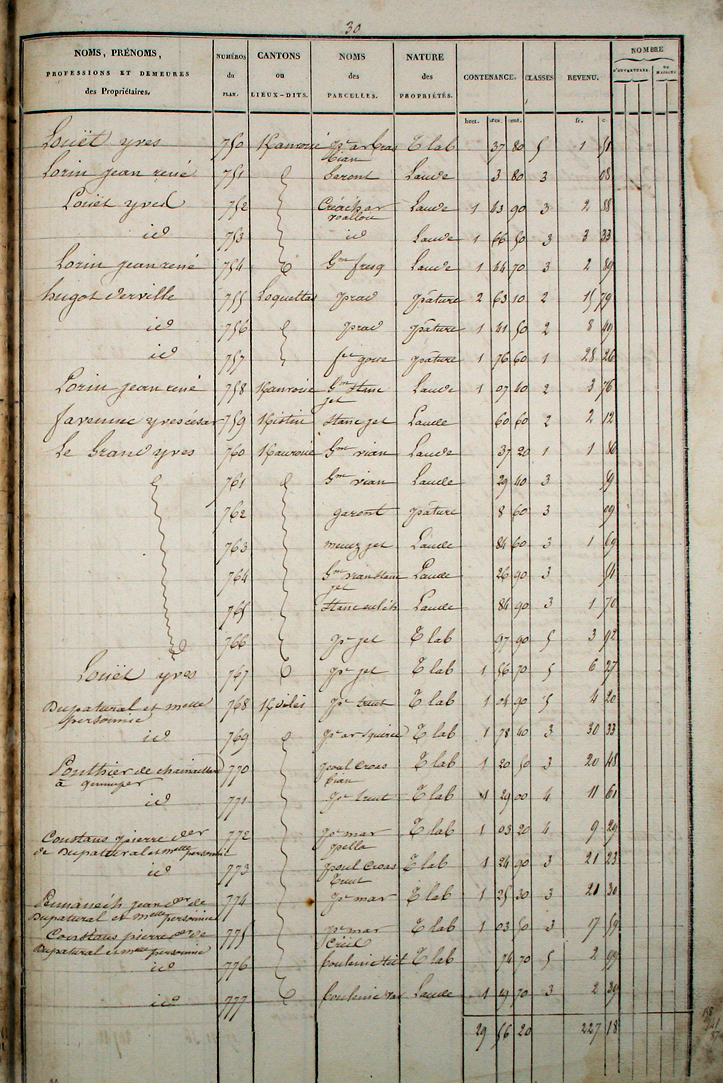 30
NOMS, PRÉNOMS, PROFESSIONS ET DEMEURES des Propriétaires. NUMÉROS du PLAN. CANTONS ou LIEUX-DITS. NOMS des PARCELLES. NATURE des PROPRIÉTÉS. CONTENANCE. CLASSES REVENU. NOMBRE D'OUVERTURES. DE MAISONS
hect. ares. cent. fr. c.
Louët yves 750 Kanroué T lab 37 80 5 1 51
bian
Lorin jean rené 751 Garont Laude 3 80 3 08
Louët yves 752 Laude 1 43 90 3 2 88
id 753 id Laude 1 66 50 3 3 33
Lorin jean rené 754 Laude 1 44 70 3 2 89
hugot derville 755 Loquettas prad pâture 2 63 10 2 15 79
id 756 prad pâture 1 41 50 2 8 49
id 757 pâture 1 76 60 1 28 26
Lorin jean rené 758 Kanroué Gm Stanc Laude 1 07 40 2 3 76
jet
favennec yves césar 759 Kistin Stanc jet Laude 60 60 2 2 12
Le Grand yves 760 Kanroué Gm vian Laude 37 20 1 1 86
761 Gm vian Laude 29 40 3 59
762 garont pâture 8 60 3 09
763 menez jet Laude 84 60 3 1 69
764 Gm vian Stanc Laude 26 90 3 54
jet
765 Laude 84 90 3 1 70
766 pr jet T lab 97 90 5 3 92
Louët yves 767 pr jet T lab 1 56 70 5 6 27
Dupatural et melle 768 Kvilès T lab 1 04 90 5 4 20
personnic
id 769 T lab 1 78 40 3 30 33
Ponthier de chamaillard 770 poul Croas T lab 1 20 50 3 20 48
à quimper bian
id 771 T lab 1 29 00 4 11 61
Constans pierre der 772 pr mar T lab 1 03 20 4 9 29
de Dupatural et melle personnic pella
id 773 poul Croas T lab 1 24 90 3 21 23
jean der de 774 pr mar T lab 1 25 30 3 21 30
Dupatural et melle personnic
Constans pierre der de 775 pr mar T lab 1 03 50 3 17 59
Dupatural et melle personnic Creis
id 776 T lab 74 70 5 2 99
id 777 Laude 1 19 70 3 2 39
29 56 20 227 18